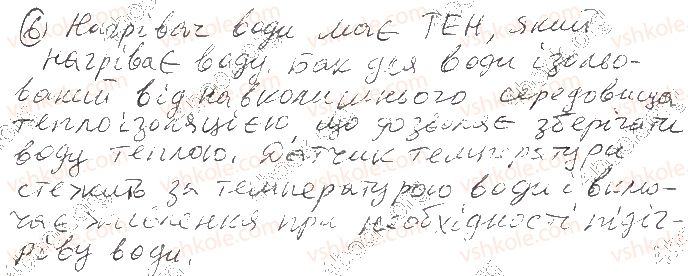 6) Нагрівач води має ТЕН, який
нагріває воду. Бак для води ізольо-
ваний від навколишнього середовища
теплоізоляцією, що дозволяє зберігати
воду теплою. Датчик температури
стежить за температурою води і вклю-
чає живлення при необхідності підіг-
ріву води.